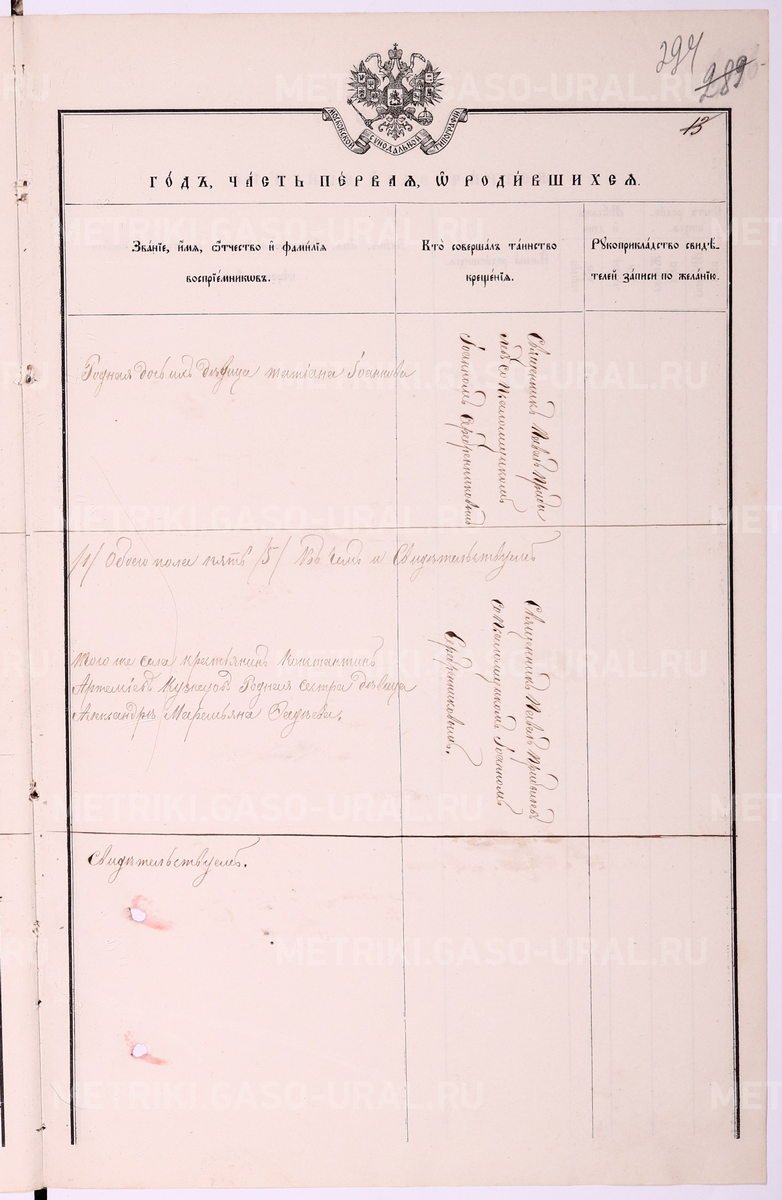 294
289
13
МОСКОВСКОЙ СѴНОДАЛЬНОЙ ТИПОГРАФІИ
ГО́ДЪ, ЧА́СТЬ ПЕ́РВАЯ, Ѽ РОДИ́ВШИХСЯ.
Зва́нїе, и́мя, ѻ҆́тчество и҆ фами́лїя
воспрїе́мникѡвъ.
Кто̀ соверша́лъ та́инство
креще́нїя.
Рꙋкоприкла́дство свидѣ́-
телей за́писи по жела́нїю.
Родная дочь ихъ дѣвица Татіана Іоаннова
Священникъ Павелъ
съ Псаломщикомъ
Іоанномъ Серебренниковымъ
/10/ Обоего пола пять /5/ Въ чемъ и Свидѣтельствуемъ
Того же села крестьянинъ Константинъ
Артемьевъ Кузнецовъ Родная сестра дѣвица
Александръ
Священникъ Павелъ
со Псаломщикомъ Іоанномъ
Серебренниковымъ.
Свидѣтельствуемъ.
METRIKI.GASO-URAL.RU